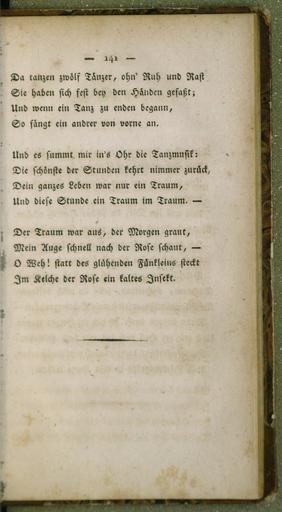 — 141 —
Da tanzen zwölf Tänzer, ohn' Ruh und Rast
Sie haben sich fest bey den Händen gefaßt;
Und wenn ein Tanz zu enden begann,
So fängt ein andrer von vorne an.
Und es summt mir in's Ohr die Tanzmusik:
Die schönste der Stunden kehrt nimmer zurück,
Dein ganzes Leben war nur ein Traum,
Und diese Stunde ein Traum im Traum. —
Der Traum war aus, der Morgen graut,
Mein Auge schnell nach der Rose schaut, —
O Weh! statt des glühenden Fünkleins steckt
Im Kelche der Rose ein kaltes Insekt.